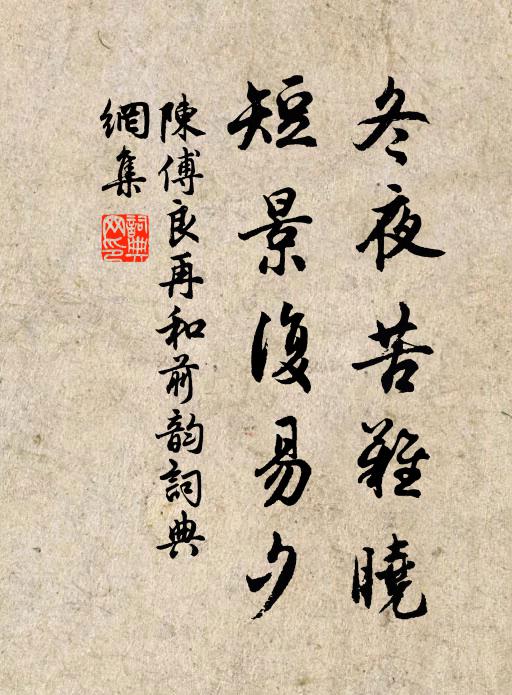 冬夜苦難曉
短景復易夕
陳傅良再和前韵詞典
網集
詞典
网印